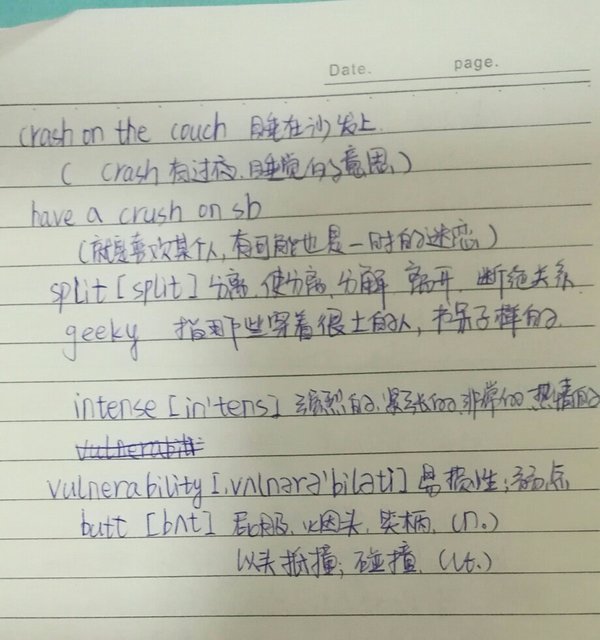 Date. page.
crash on the couch 睡在沙发上.
( crash 有过夜、睡觉的意思)
have a crush on sb
(就是喜欢某个人, 有可能也是一时的迷恋)
split [split] 分离、使分离、分解 离开、断绝关系
geeky 指那些穿着很土的人, 书呆子样的
intense [in'tens] 强烈的、紧张的、非常的 热情的
vulnerabilit
vulnerability [,vʌlnərə'biləti] 易损性; 弱点
butt [bʌt] 屁股、烟头、笑柄、(n.)
以头抵撞; 碰撞、(vt.)